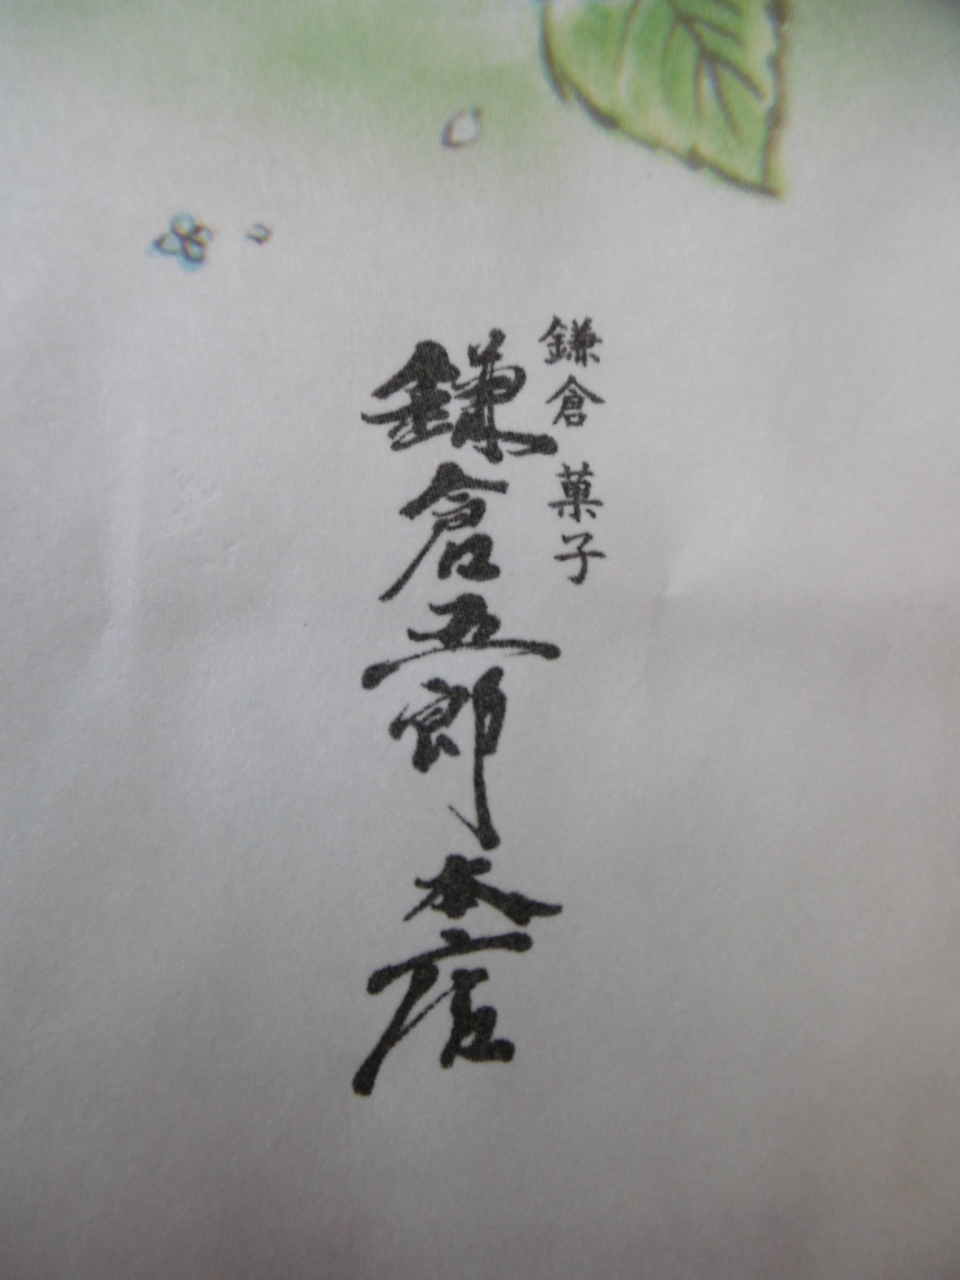 鎌倉 菓子
鎌倉五郎本店